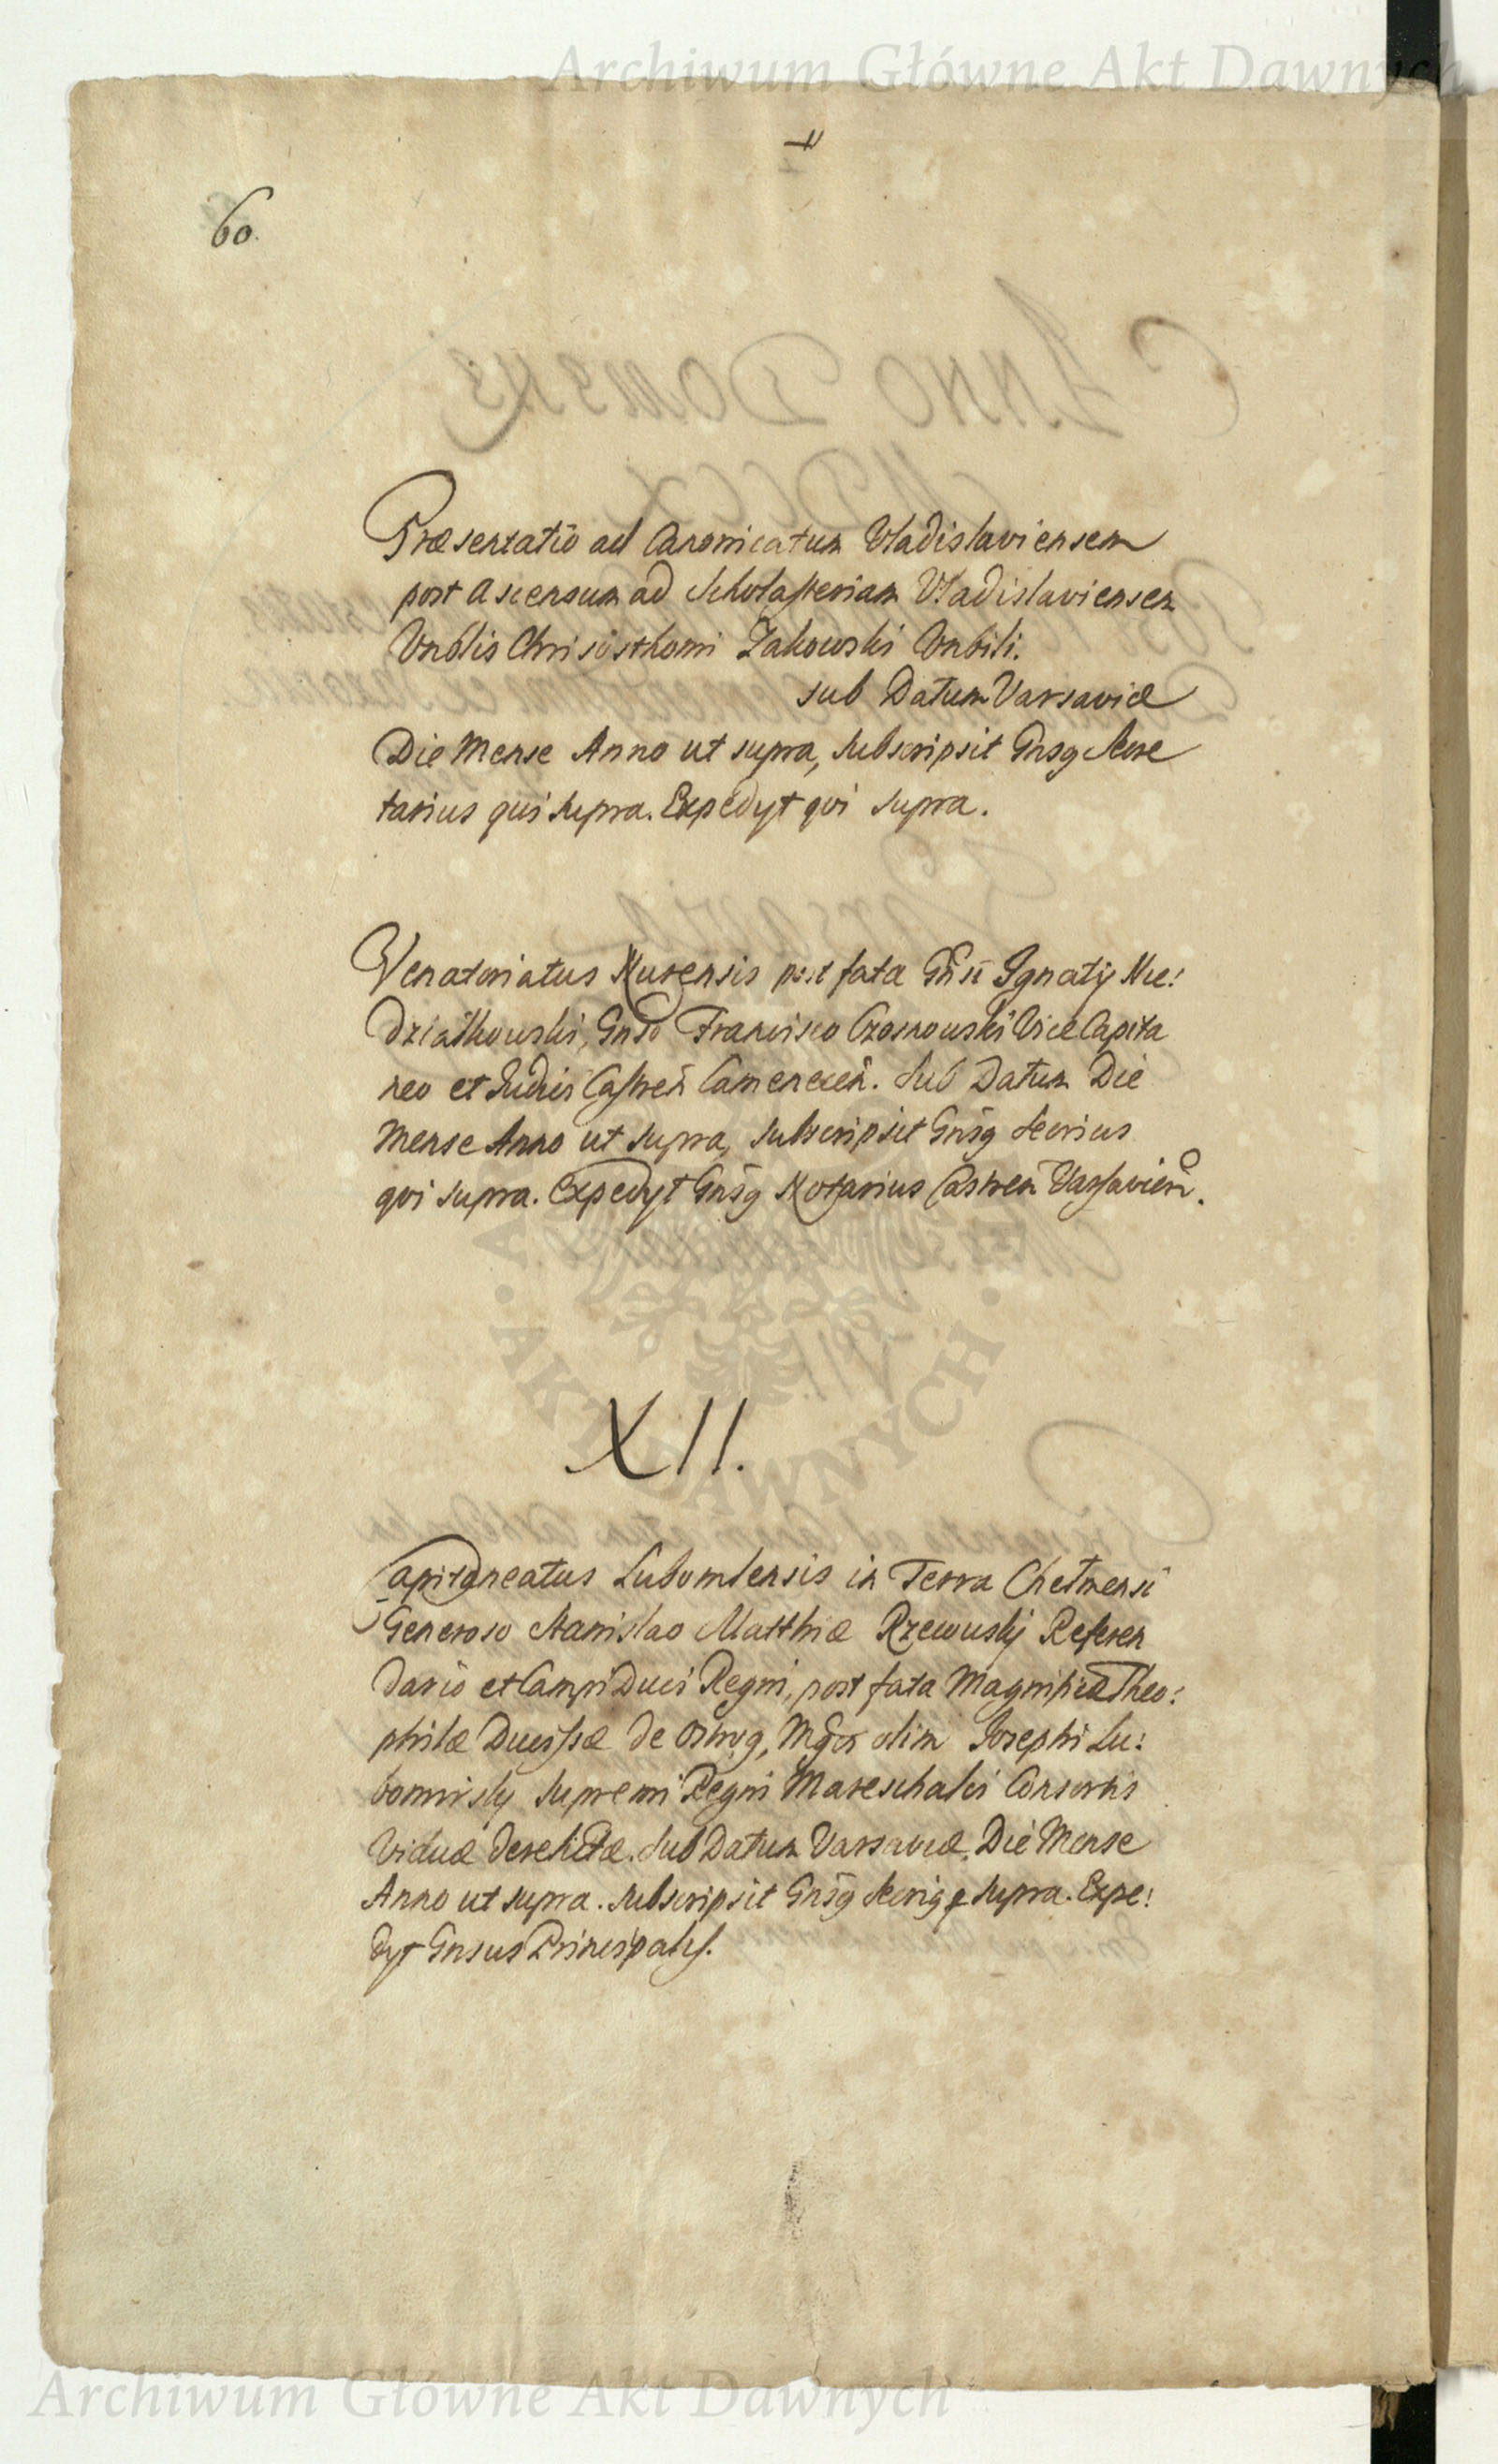 Archiwum Główne Akt Dawnych
60.
Præsentatio ad Canonicatum Vladislaviensem
post Ascensum ad Scholasteriam Vladislaviensem
Vnblis Chrisosthomi Vnbili.
sub Datum Varsaviæ
Die Mense Anno ut supra, subscripsit Gnsg Secre
tarius qui supra. Expedyt qvi supra.
Venatoriatus Nurensis post fata Gnsi Ignatij Nie:
działkowski, Gnso Francisco Czosnowski Vice Capita
neo et Judici Castren Camenecen. Sub Datum Die
Mense Anno ut supra, subscripsit Gnsg Secrius
qvi supra. Expedyt Gnsg Notarius Castren Varsavien.
AKT DAWNYCH
XII.
Capitaneatus Lubomlensis in Terra Chelmensi
Generoso Stanislao Matthiæ Rzewusky Referen
dario et Campi Duci Regni, post fata Magnificæ Theo:
philæ Ducissæ de Ostrog, olim Josephi Lu:
bomirsky Supremi Regni Mareschalci Consortis
Viduæ derelictæ. Sub Datum Varsaviæ. Die Mense
Anno ut supra. Subscripsit Gnsg Secrig q supra. Expe:
dyt Gnsus Principalis.
Archiwum Główne Akt Dawnych